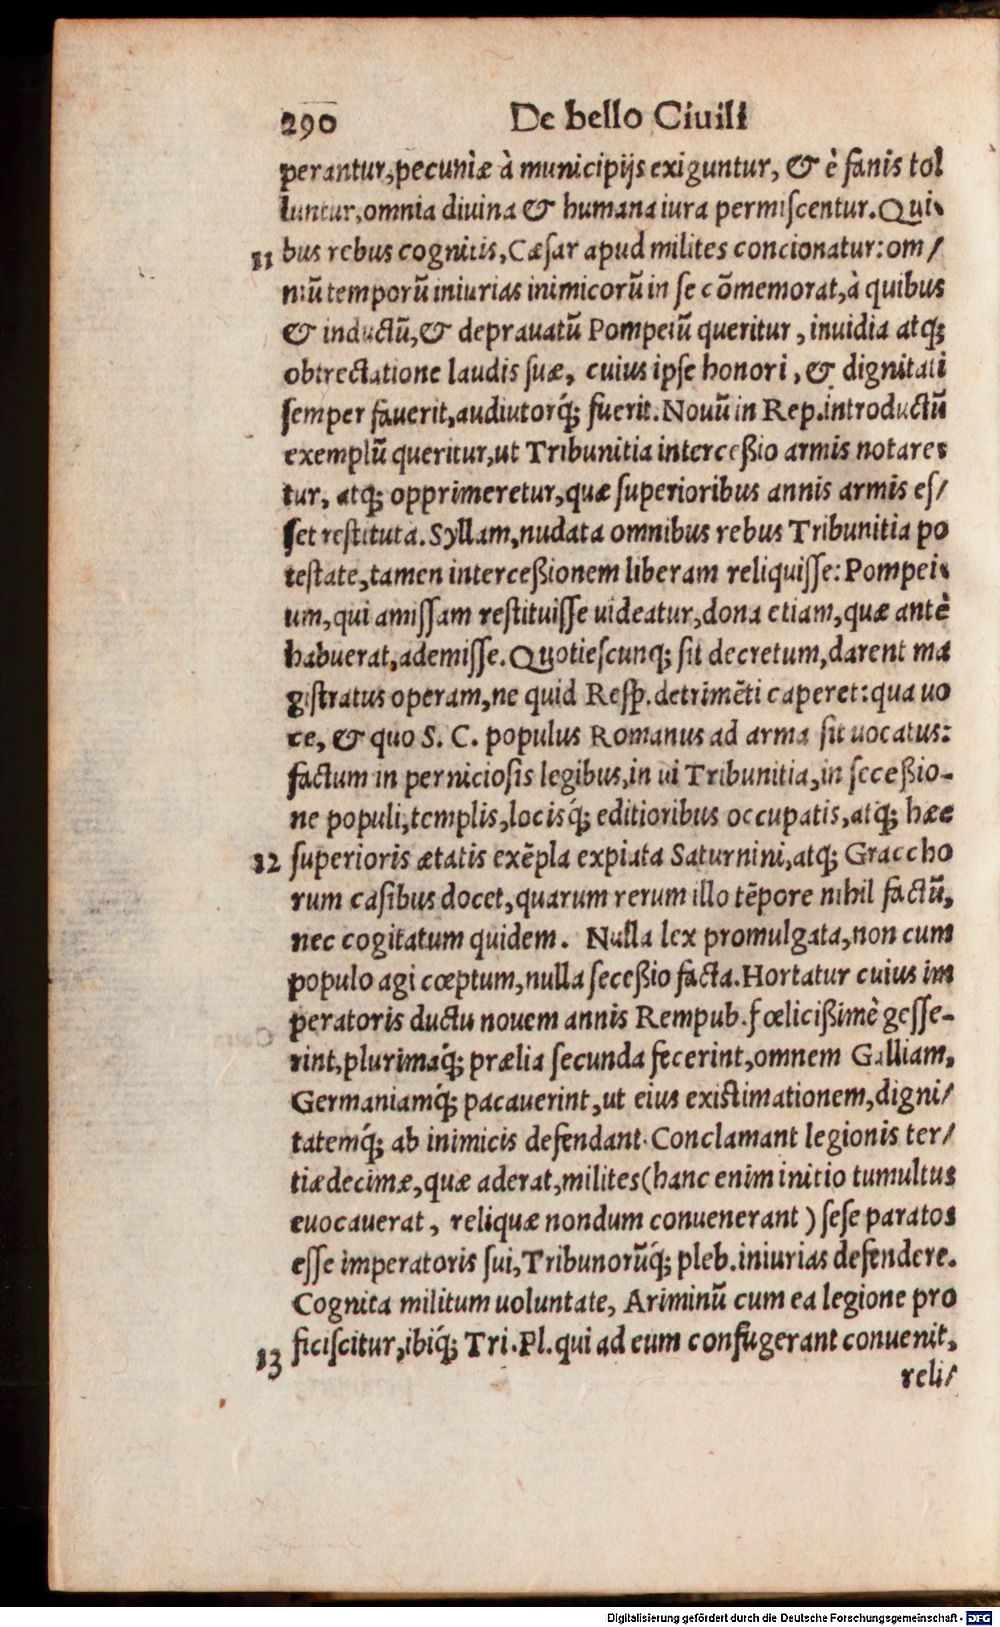 290 De bello Ciuili
perantur,pecuniæ à municipijs exiguntur, & è fanis tol
luntur,omnia diuina & humana iura permiſcentur.Qui-
11 bus rebus cognitis,Cæſar apud milites concionatur:om/
niū temporū iniurias inimicorū in ſe cōmemorat,à quibus
& inductū,& deprauatū Pompeiū queritur, inuidia atq;
obtrectatione laudis ſuæ, cuius ipſe honori, & dignitati
ſemper fauerit,audiutorq́; fuerit.Nouū in Rep.introductū
exemplū queritur,ut Tribunitia interceßio armis notare-
tur, atq; opprimeretur,quæ ſuperioribus annis armis eſ/
ſet reſtituta.Syllam,nudata omnibus rebus Tribunitia po
teſtate,tamen interceßionem liberam reliquiſſe:Pompei-
um,qui amiſſam reſtituiſſe uideatur,dona etiam,quæ antè
habuerat,ademiſſe.Quotieſcunq; ſit decretum,darent ma
giſtratus operam,ne quid Reſp.detrimēti caperet:qua uo
ce, & quo S. C. populus Romanus ad arma ſit uocatus:
factum in pernicioſis legibus,in ui Tribunitia,in ſeceßio-
ne populi,templis,locisq́; editioribus occupatis,atq; hæc
12 ſuperioris ætatis exēpla expiata Saturnini,atq; Graccho
rum caſibus docet,quarum rerum illo tēpore nihil factū,
nec cogitatum quidem. Nulla lex promulgata,non cum
populo agi cœptum,nulla ſeceßio facta.Hortatur cuius im
peratoris ductu nouem annis Rempub.fœlicißimè geſſe-
rint,plurimaq́; prælia ſecunda fecerint,omnem Galliam,
Germaniamq́; pacauerint,ut eius exiſtimationem,digni/
tatemq́; ab inimicis defendant.Conclamant legionis ter/
tiædecimæ,quæ aderat,milites(hanc enim initio tumultus
euocauerat, reliquæ nondum conuenerant) ſeſe paratos
eſſe imperatoris ſui,Tribunorūq́; pleb.iniurias defendere.
Cognita militum uoluntate, Ariminū cum ea legione pro
13 ficiſcitur,ibiq́; Tri.Pl.qui ad eum confugerant conuenit,
reli/
Digitalisierung gefördert durch die Deutsche Forschungsgemeinschaft - DFG